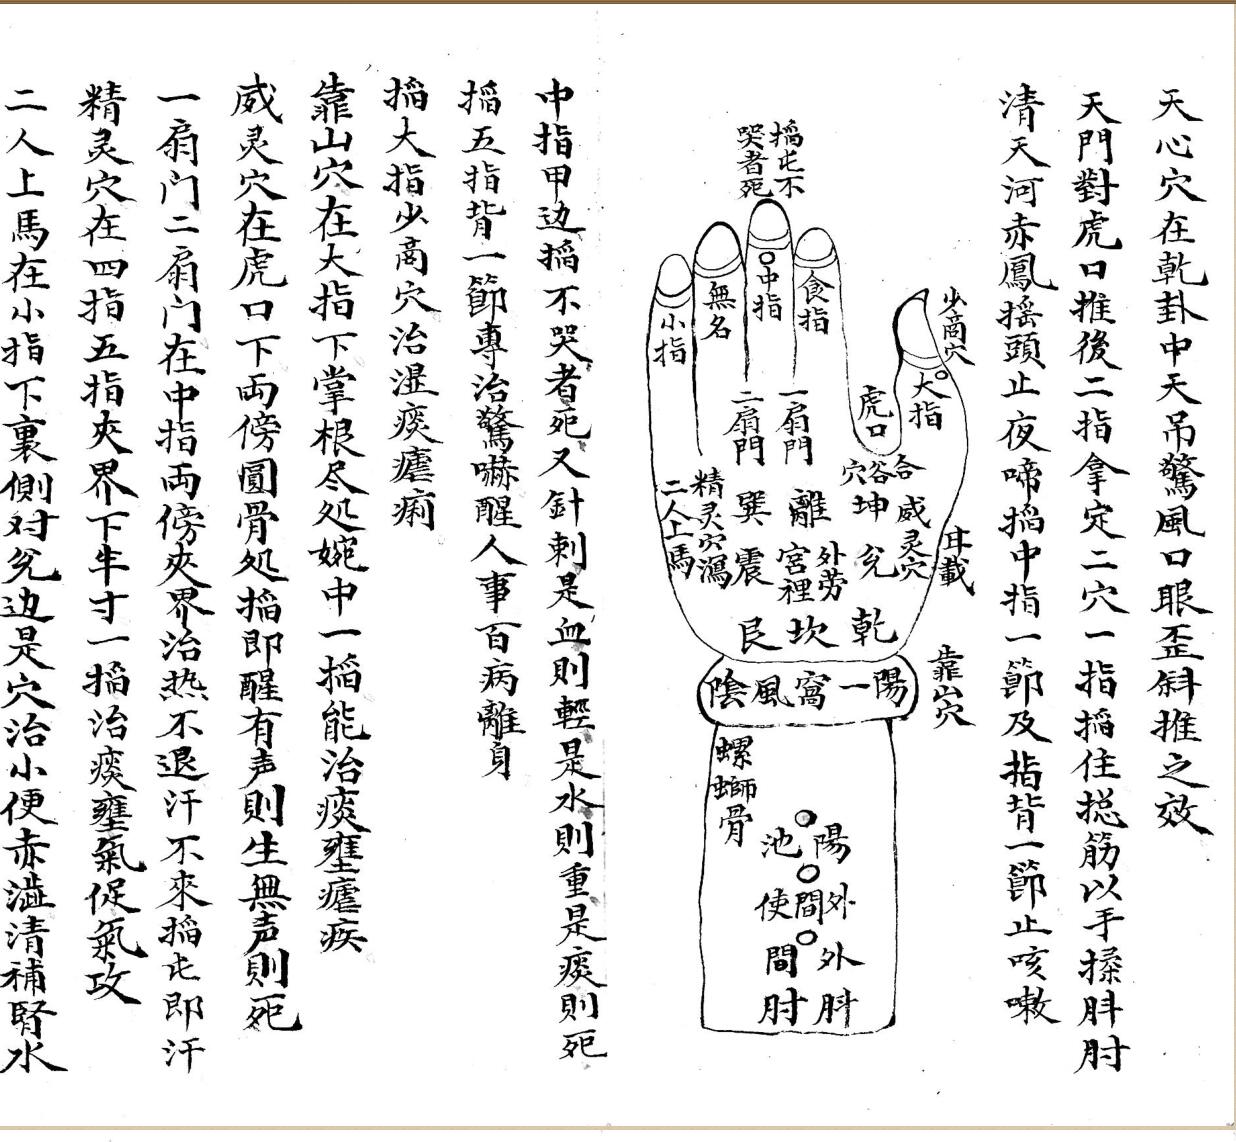 天心穴在乾卦中天吊驚風口眼歪斜推之效
天門對虎口推後二指拿定二穴一指搯住捴筋以手揉肘肘
清天河赤鳳揺頭止夜啼搯中指一節及指背一節止咳嗽
搯屯不
哭者死
少商穴
大指
食指
中指
無名
小指
虎口
一扇門
二扇門
合谷穴
威灵穴
精灵穴瀉
二人上馬
坤
離
巽
兊
外劳
宮裡
震
乾
坎
艮
耳載
靠山穴
陽一窩風陰
螺螄骨
陽池
外間使
外間
肘肘
中指甲边搯不哭者死又針刺是血則輕是水則重是痰則死
搯五指背一節專治驚嚇醒人事百病離身
搯大指少商穴治湿痰瘧痢
靠山穴在大指下掌根尽处婉中一搯能治痰壅瘧疾
威灵穴在虎口下両傍圓骨处搯即醒有声則生無声則死
一扇门二扇门在中指両傍夾界治热不退汗不來搯屯即汗
精灵穴在四指五指夾界下半寸一搯治痰壅氣促氣攻
二人上馬在小指下裏側对兊边是穴治小便赤澁清補腎水